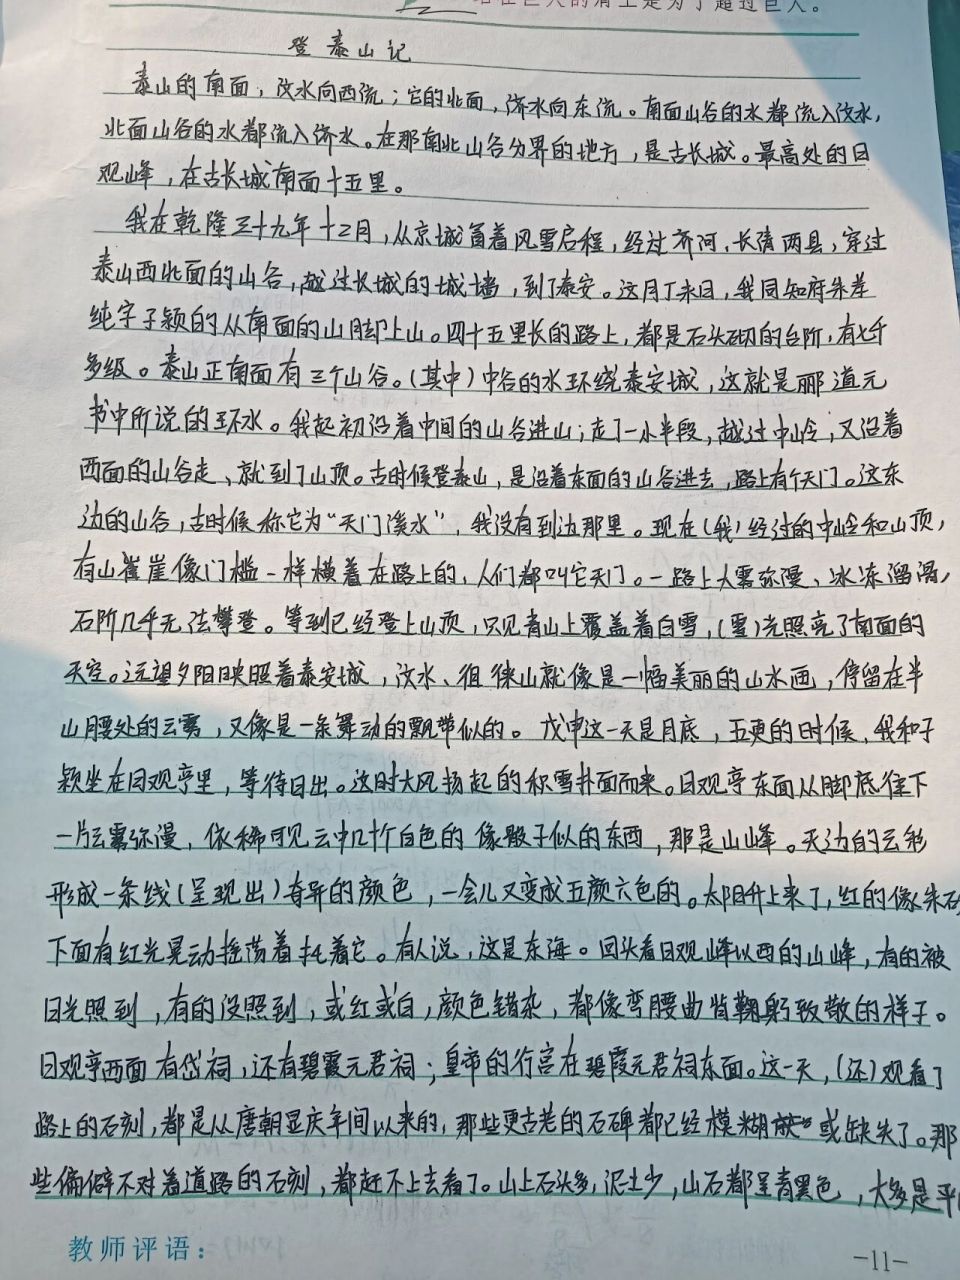 站在巨人的肩上是为了超过巨人。
登泰山记
泰山的南面，汶水向西流；它的北面，济水向东流。南面山谷的水都流入汶水，
北面山谷的水都流入济水。在那南北山谷分界的地方，是古长城。最高处的日
观峰，在古长城南面十五里。
我在乾隆三十九年十二月，从京城冒着风雪启程，经过齐河、长清两县，穿过
泰山西北面的山谷，越过长城的城墙，到了泰安。这月丁未日，我同知府朱孝
纯字子颖的从南面的山脚上山。四十五里长的路上，都是石头砌的台阶，有七千
多级。泰山正南面有三个山谷。（其中）中谷的水环绕泰安城，这就是郦道元
书中所说的环水。我起初沿着中间的山谷进山；走了一小半段，越过中岭，又沿着
西面的山谷走、就到了山顶。古时候登泰山，是沿着东面的山谷进去，路上有个天门。这东
边的山谷，古时候称它为“天门溪水”，我没有到过那里。现在（我）经过的中岭和山顶，
有山崖崖像门槛一样横着在路上的，人们都叫它天门。一路上大雾弥漫、冰冻溜滑，
石阶几乎无法攀登。等到已经登上山顶，只见青山上覆盖着白雪，（雪）光照亮了南面的
天空。远望夕阳映照着泰安城，汶水、徂徕山就像是一幅美丽的山水画，停留在半
山腰处的云雾，又像是一条舞动的飘带似的。戊申这一天是月底，五更的时候，我和子
颖坐在日观亭里，等待日出。这时大风扬起的积雪扑面而来。日观亭东面从脚底往下
一片云雾弥漫，依稀可见云中几十个白色的像骰子似的东西，那是山峰。天边的云彩
形成一条线（呈现出）奇异的颜色，一会儿又变成五颜六色的。太阳升上来了，红的像朱砂
下面有红光晃动摇荡着托着它。有人说，这是东海。回头看日观峰以西的山峰，有的被
日光照到，有的没照到，或红或白，颜色错杂，都像弯腰曲背鞠躬致敬的样子。
日观亭西面有岱祠，还有碧霞元君祠；皇帝的行宫在碧霞元君祠东面。这一天，（还）观看了
路上的石刻，都是从唐朝显庆年间以来的，那些更古老的石碑都已经模糊或缺失了。那
些偏僻不对着道路的石刻，都赶不上去看了。山上石头多，泥土少，山石都呈青黑色，大多是平
教师评语：
-11-